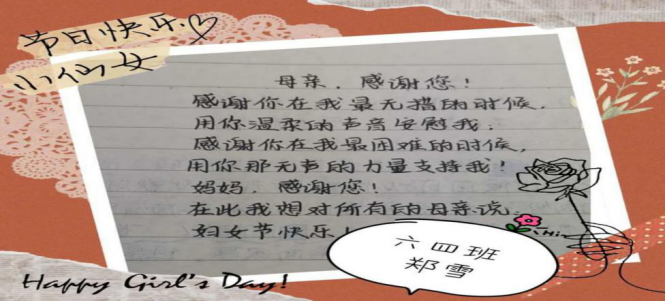 节日快乐♡
小仙女
母亲,感谢您!
感谢你在我最无措的时候,
用你温柔的声音安慰我;
感谢你在我最困难的时候,
用你那无声的力量支持我!
妈妈,感谢您!
在此我想对所有的母亲说,
妇女节快乐!
六四班
郑雪
Happy Girl's Day!